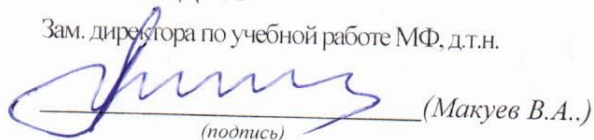 Зам. директора по учебной работе МФ, д.т.н.
(Макуев В.А..)
(подпись)